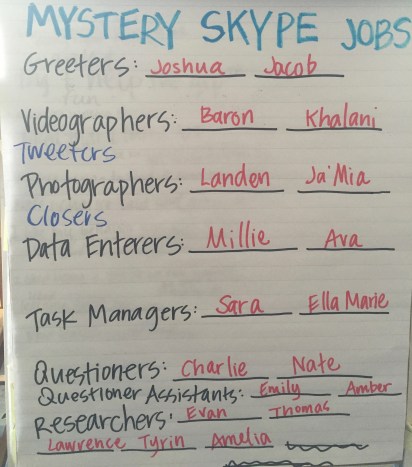 MYSTERY SKYPE JOBS
Greeters: Joshua Jacob
Videographers: Baron Khalani
Tweeters
Photographers: Landen Ja'Mia
Closers
Data Enterers: Millie Ava
Task Managers: Sara Ella Marie
Questioners: Charlie Nate
Questioner Assistants: Emily Amber
Researchers: Evan Thomas
Lawrence Tyrin Amelia